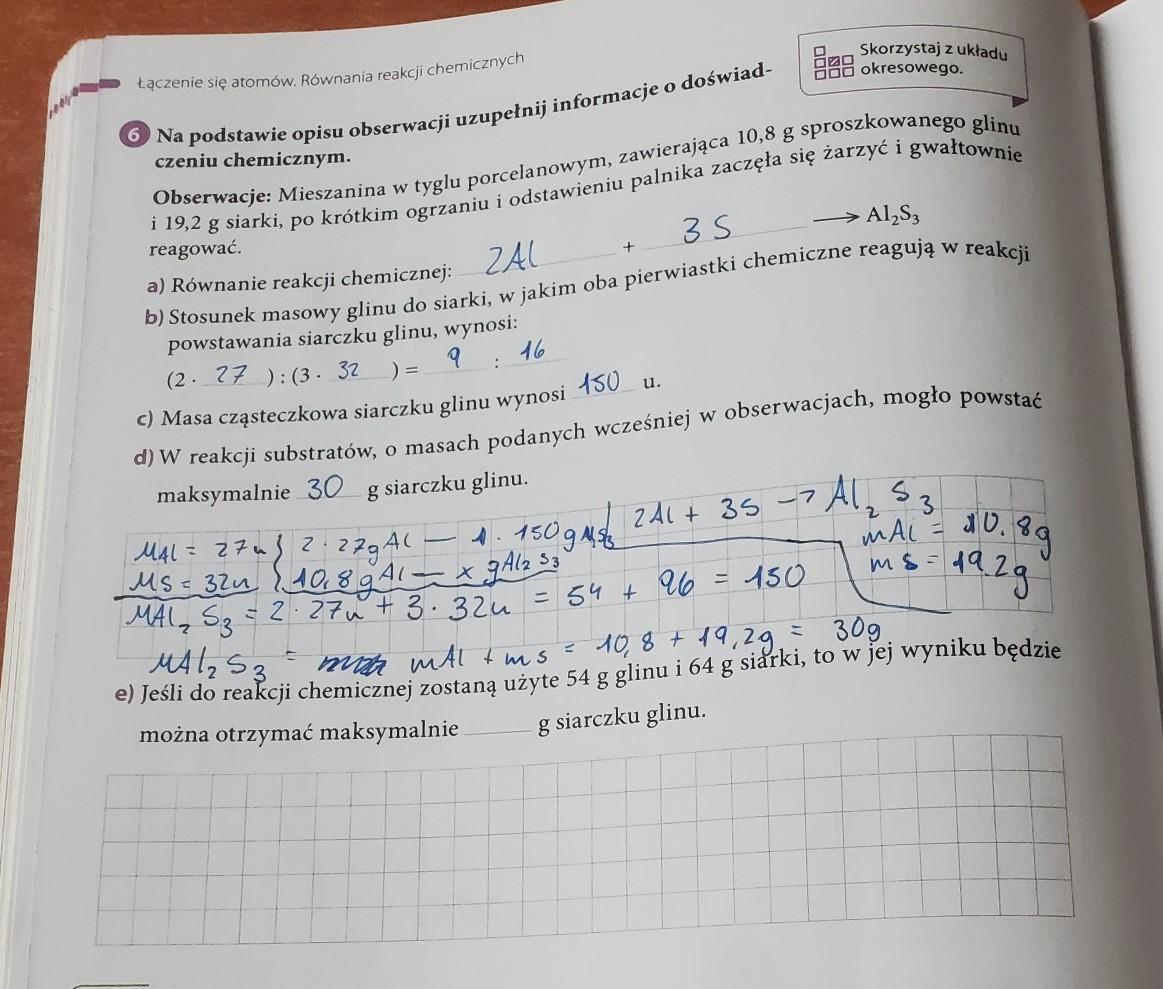 Łączenie się atomów. Równania reakcji chemicznych
Skorzystaj z układu
okresowego.
6 Na podstawie opisu obserwacji uzupełnij informacje o doświad-
czeniu chemicznym.
Obserwacje: Mieszanina w tyglu porcelanowym, zawierająca 10,8 g sproszkowanego glinu
i 19,2 g siarki, po krótkim ogrzaniu i odstawieniu palnika zaczęła się żarzyć i gwałtownie
reagować.
a) Równanie reakcji chemicznej: 2Al + 3S ⟶ Al₂S₃
b) Stosunek masowy glinu do siarki, w jakim oba pierwiastki chemiczne reagują w reakcji
powstawania siarczku glinu, wynosi:
(2 · 27 ) : (3 · 32 ) = 9 : 16
c) Masa cząsteczkowa siarczku glinu wynosi 150 u.
d) W reakcji substratów, o masach podanych wcześniej w obserwacjach, mogło powstać
maksymalnie 30 g siarczku glinu.
2Al + 3S → Al₂S₃
MAl = 27u } 2 · 27g Al — 1 · 150g
mAl = 10.8g
MS = 32u { 10,8g Al — x g Al₂S₃
mS = 19.2g
MAl₂S₃ = 2 · 27u + 3 · 32u = 54 + 96 = 150
MAl₂S₃ = mAl + mS = 10,8 + 19,2g = 30g
e) Jeśli do reakcji chemicznej zostaną użyte 54 g glinu i 64 g siarki, to w jej wyniku będzie
można otrzymać maksymalnie ______ g siarczku glinu.